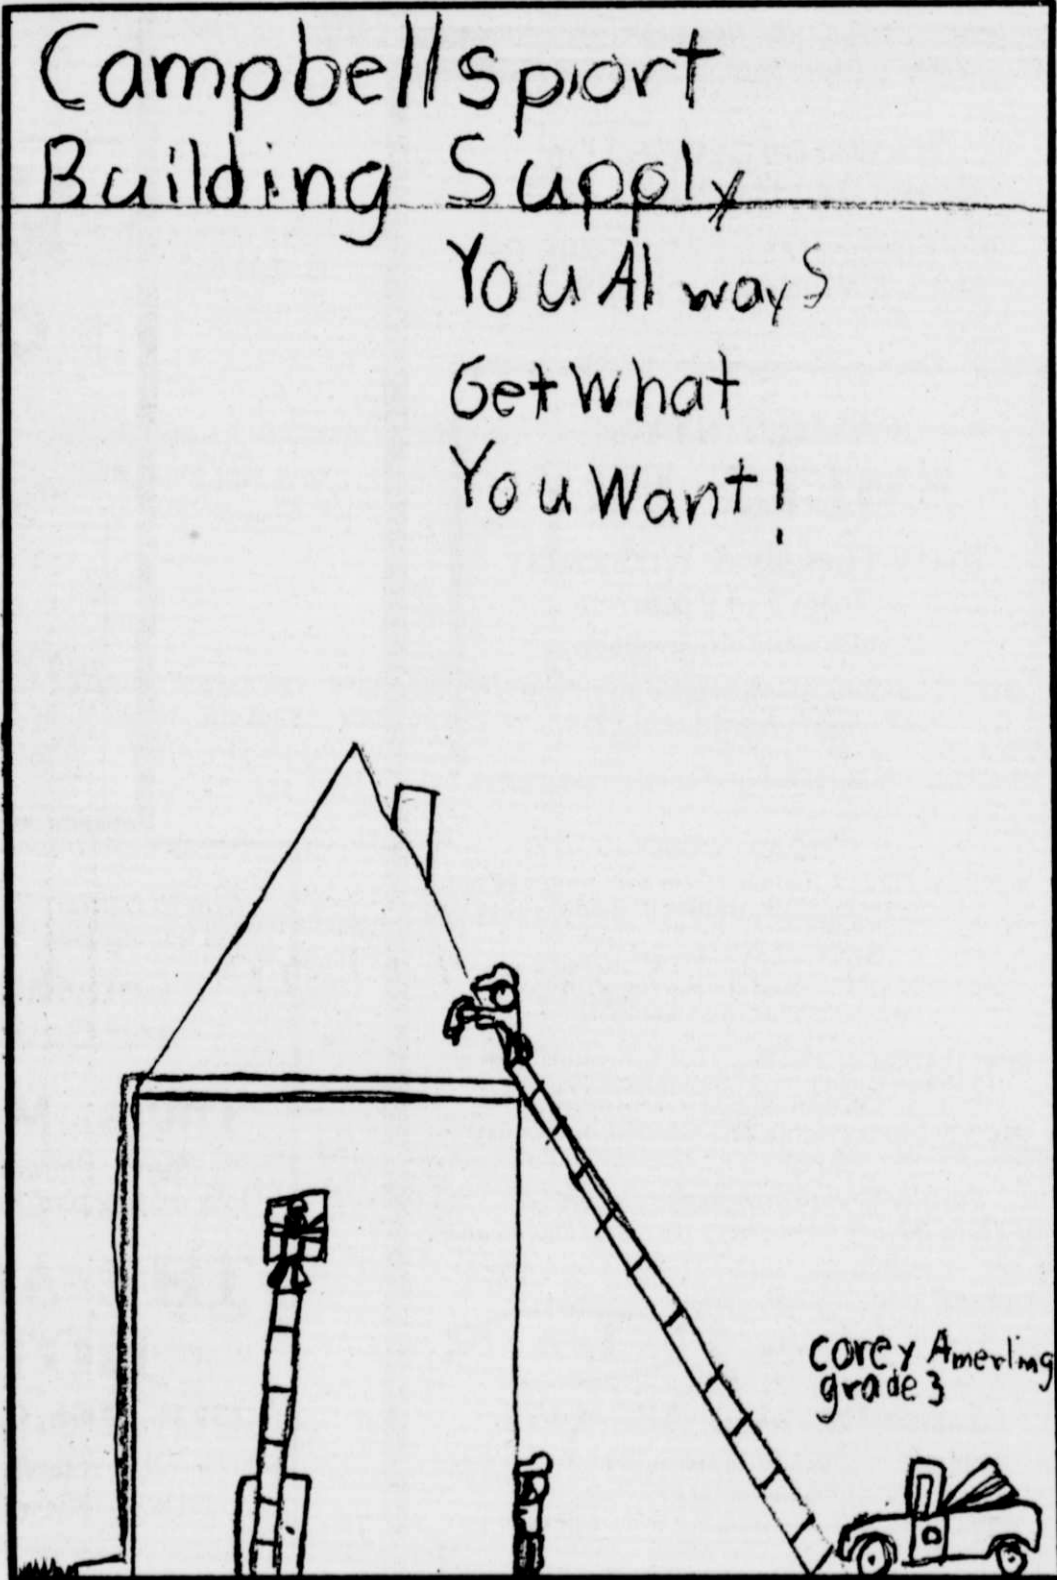 Campbellsport
Building Supply
You Always
Get What
You Want!
corey Amerling
grade 3